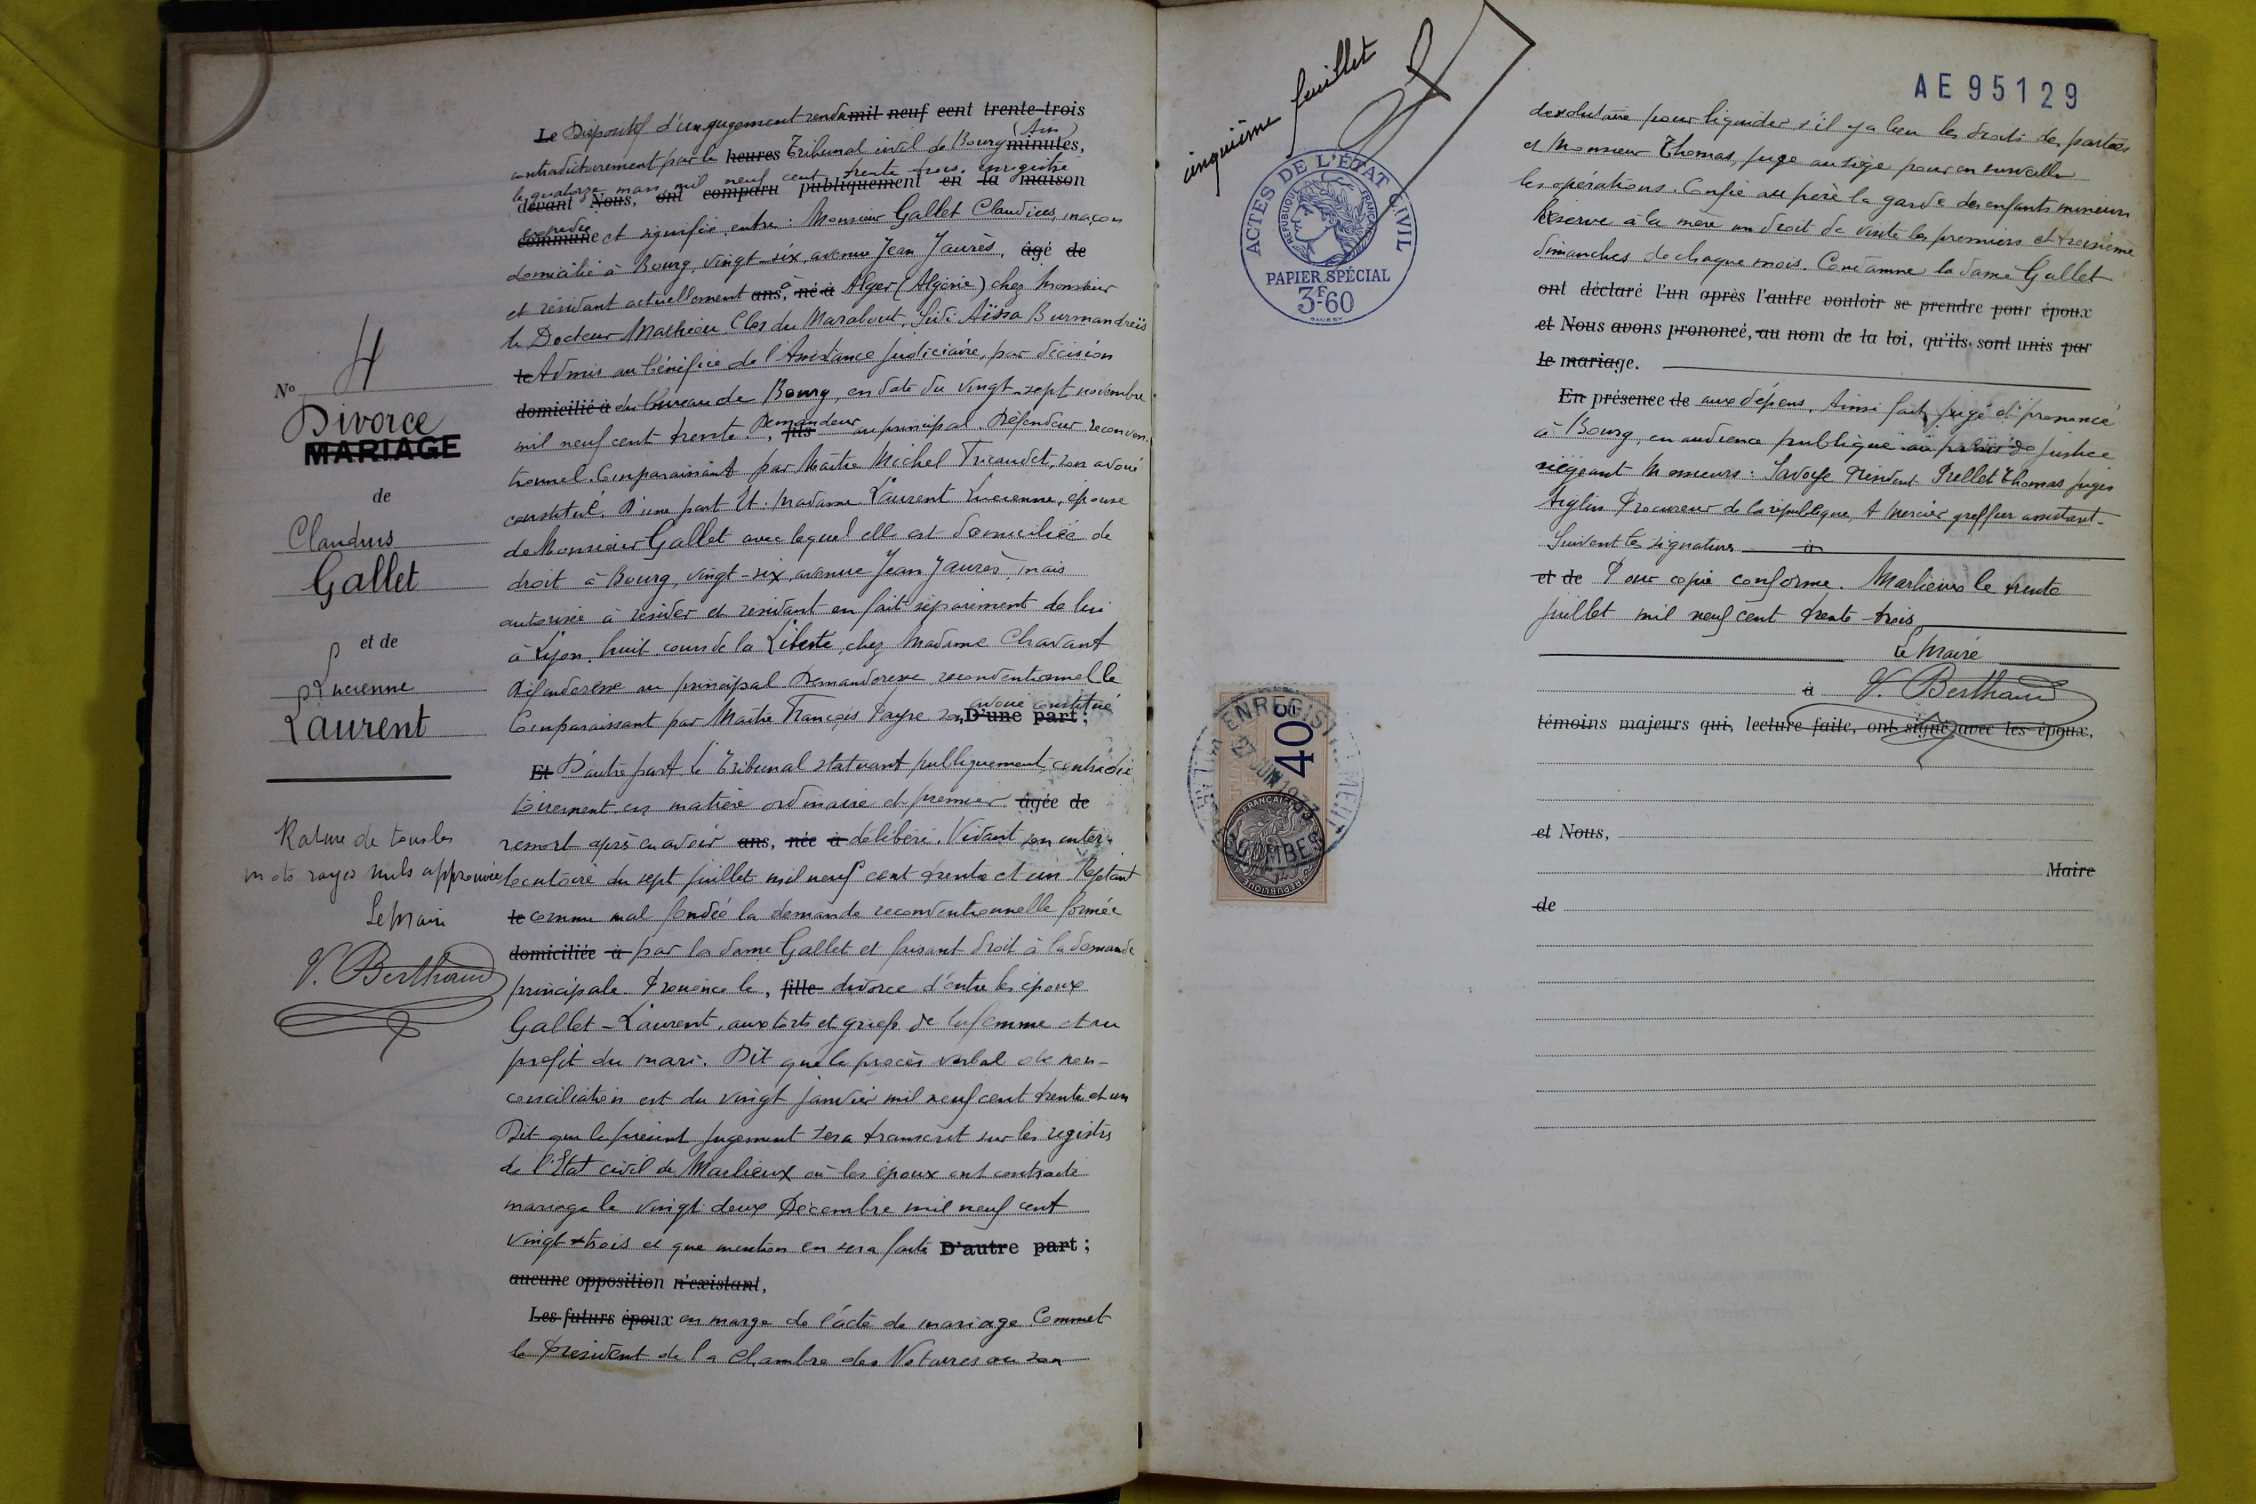 N° 4
Divorce
MARIAGE
de
Claudius
Gallet
et de
Lucienne
Laurent
Rature de tous les
mots rayés nuls approuvée
Le Maire
V. Berthaud
Le Dispositif d'un jugement rendu mil neuf cent trente-trois
contradictoirement par le heures Tribunal civil de Bourg (Ain) minutes,
le quatorze mars mil neuf cent trente trois, enregistré
devant Nous, ont comparu publiquement en la maison
expédié
commune et signifié entre : Monsieur Gallet Claudius, maçon
domicilié à Bourg, vingt-six, avenue Jean Jaurès, âgé de
et résidant actuellement ans, né à à Alger (Algérie) chez Monsieur
le Docteur Mathieu Clos du Marabout, Sidi Aïssa Burmandreïs
le Admis au bénéfice de l'Assistance judiciaire, par décision
domicilié à du bureau de Bourg, en date du vingt-sept novembre
mil neuf cent trente. Demandeur, fils au principal Défendeur reconven-
tionnel. Comparaissant par Maître Michel Tricaudet, son avoué
constitué. D'une part Et. Madame Laurent Lucienne, épouse
de Monsieur Gallet avec lequel elle est domiciliée de
droit à Bourg, vingt-six, avenue Jean Jaurès, mais
autorisée à résider et résidant en fait séparément de lui
à Lyon, huit, cours de la Liberté, chez Madame Chavant
Défenderesse au principal Demanderesse reconventionnelle
Comparaissant par Maître François Payre son avoué constitué D'une part ;
Et D'autre part Le Tribunal statuant publiquement, contradic
toirement en matière ordinaire et premier âgée de
ressort après en avoir ans, née à délibéré. Vidant son inter-
locutoire du sept juillet mil neuf cent trente et un Rejetant
le comme mal fondée la demande reconventionnelle formée
domiciliée à par la dame Gallet et faisant droit à la demande
principale Prononce le, fille divorce d'entre les époux
Gallet-Laurent, aux torts et griefs de la femme et au
profit du mari. Dit que le procès verbal de non-
conciliation est du vingt janvier mil neuf cent trente et un
Dit que le présent jugement sera transcrit sur les registres
de l'Etat civil de Marlieux où les époux ont contracté
mariage le vingt deux Décembre mil neuf cent
vingt-trois et que mention en sera faite D'autre part ;
aucune opposition n'existant,
Les futurs époux en marge de l'acte de mariage Commet
le Président de la Chambre des Notaires ou son
cinquième feuillet
ACTES DE L'ÉTAT CIVIL
RÉPUBLIQUE FRANÇAISE
PAPIER SPÉCIAL
3F-60
ENREGISTREMENT
40c
27 JUIN 1933
AE 95129
dévolutaire pour liquider s'il y a lieu les droits des parties
et Monsieur Thomas, juge au siège pour en surveiller
les opérations. Confie au père la garde des enfants mineurs
Réserve à la mère un droit de visite les premiers et troisième
dimanches de chaque mois. Condamne la dame Gallet
ont déclaré l'un après l'autre vouloir se prendre pour époux
et Nous avons prononcé, au nom de la loi, qu'ils sont unis par
le mariage.
En présence de aux dépens. Ainsi fait, jugé et prononcé
à Bourg, en audience publique au palais de justice
siégeant Messieurs : Savoye Président Prellet Thomas juges
Aiglin Procureur de la république, A Mercier greffier assistant-
Suivent les signatures à
et de Pour copie conforme. Marlieux le trente
juillet mil neuf cent trente-trois
Le Maire
à V. Berthaud
témoins majeurs qui, lecture faite, ont signé avec les époux,
et Nous,
Maire
de